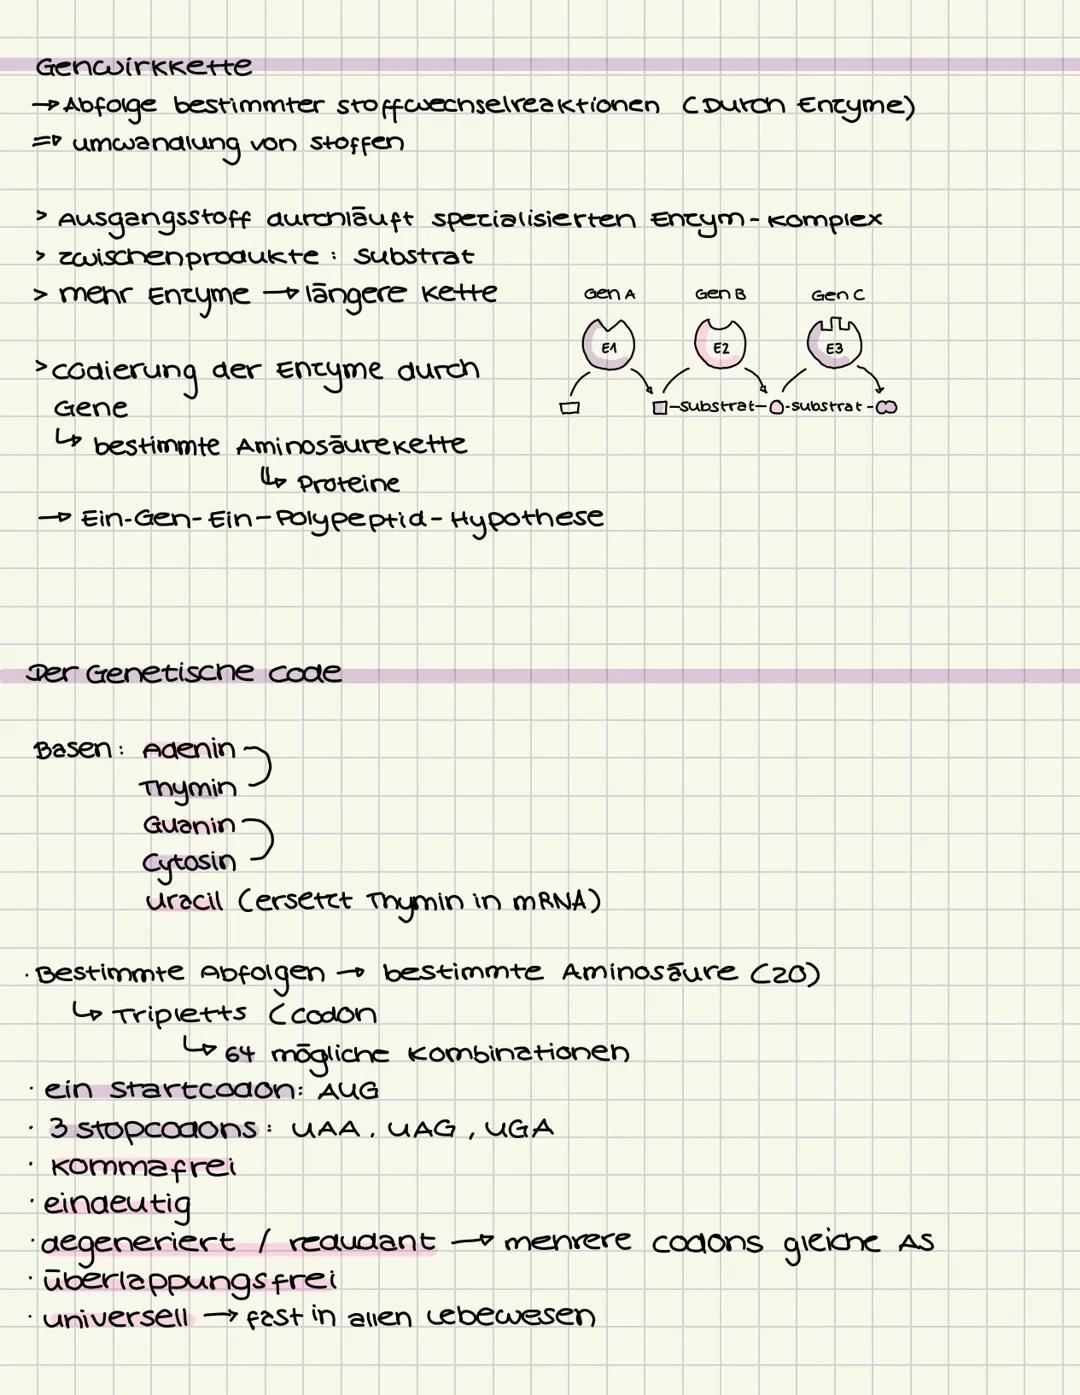 Genwirkkette
→ Abfolge bestimmter Stoffwechselreaktionen (Durch Enzyme)
⇒ umwandlung von Stoffen
> Ausgangsstoff durchläuft spezialisierten Enzym-Komplex
> Zwischenprodukte: Substrat
> mehr Enzyme → längere Kette
Gen A Gen B Gen C
E1 E2 E3
-Substrat- -Substrat-
> Codierung der Enzyme durch
Gene
↳ bestimmte Aminosäurekette
↳ Proteine
→ Ein-Gen-Ein-Polypeptid-Hypothese
Der Genetische Code
Basen: Adenin
Thymin
Guanin
Cytosin
Uracil (ersetzt Thymin in mRNA)
· Bestimmte Abfolgen → bestimmte Aminosäure (20)
↳ Tripletts (Codon
↳ 64 mögliche Kombinationen
· ein Startcodon: AUG
· 3 Stopcodons: UAA, UAG, UGA
· Kommafrei
· eindeutig
· degeneriert / redudant → mehrere Codons gleiche AS
· überlappungsfrei
· universell → fast in allen Lebewesen